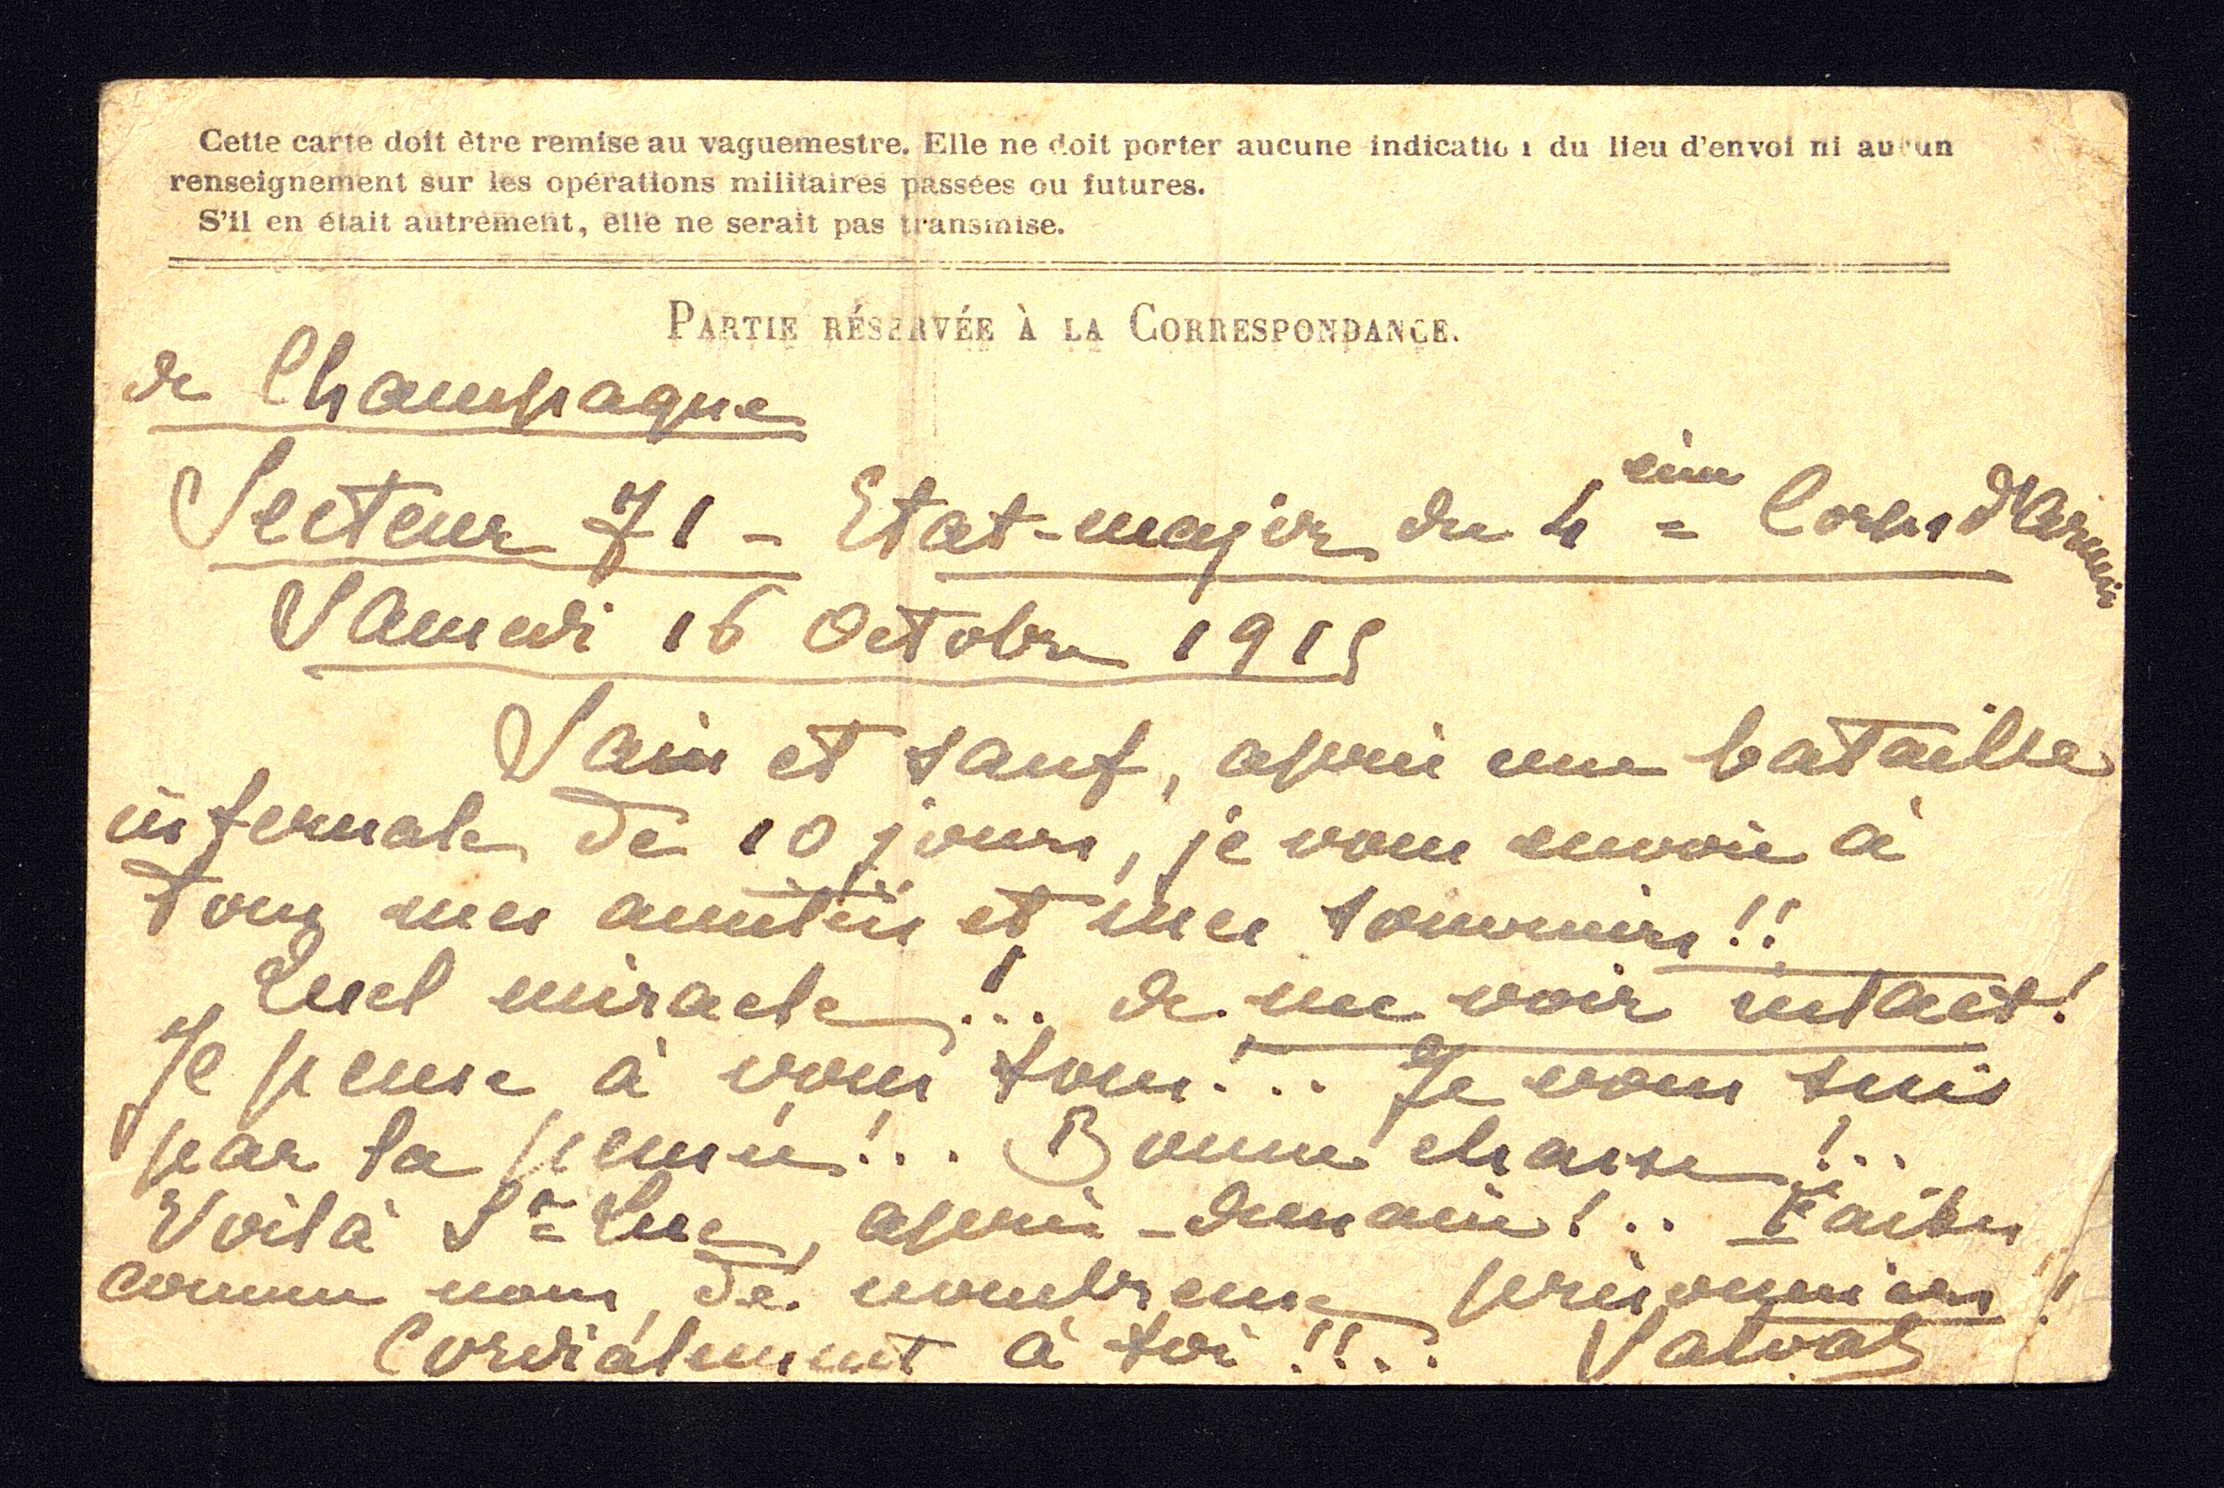 Cette carte doit être remise au vaguemestre. Elle ne doit porter aucune indication du lieu d'envoi ni aucun
renseignement sur les opérations militaires passées ou futures.
S'il en était autrement, elle ne serait pas transmise.
PARTIE RÉSERVÉE À LA CORRESPONDANCE.
de Champagne
Secteur 71 - Etat-major du 4 eme Corps d'Armée
Samedi 16 Octobre 1915
Sain et sauf, après une bataille
infernale de 10 jours, je vous envoie à
tous mes amitiés et mes souvenirs !!
Quel miracle !.. de me voir intact !
Je pense à vous tous !.. Je vous suis
par la pensée !.. Bonne chasse !..
Voilà St Luc, après-demain !.. Faites
comme nous, de nombreux prisonniers !
Cordialement à toi !!..